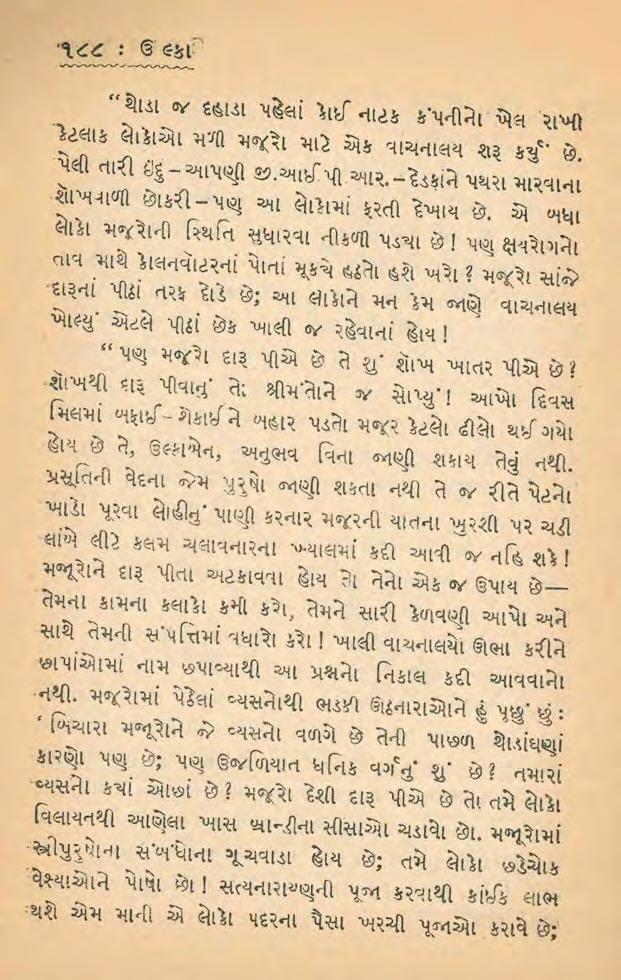 ૧૮૮ : ઉલ્કા
“થોડા જ દહાડા પહેલાં કોઈ નાટક કંપનીનો ખેલ રાખી
કેટલાક લોકોએ મળી મજૂરો માટે એક વાચનાલય શરૂ કર્યું છે.
પેલી તારી ઇંદુ – આપણી જી.આઈ.પી.આર. – દેડકાંને પથરા મારવાના
શૉખવાળી છોકરી – પણ આ લોકોમાં ફરતી દેખાય છે. એ બધા
લોકો મજૂરોની સ્થિતિ સુધારવા નીકળી પડ્યા છે! પણ ક્ષયરોગનો
તાવ માથે કોલનવૉટરનાં પોતાં મૂકયે હઠતો હશે ખરો? મજૂરો સાંજે
દારૂનાં પીઠાં તરફ દોડે છે; આ લોકોને મન કેમ જાણે વાચનાલય
ખોલ્યું એટલે પીઠાં છેક ખાલી જ રહેવાનાં હોય!
“પણ મજૂરો દારૂ પીએ છે તે શું શૉખ ખાતર પીએ છે?
શૉખથી દારૂ પીવાનું તો શ્રીમંતોને જ સોપ્યું! આખો દિવસ
મિલમાં બફાઈ–શેકાઈને બહાર પડતો મજૂર કેટલો ઢીલો થઈ ગયો
હોય છે તે, ઉલ્કાબેન, અનુભવ વિના જાણી શકાય તેવું નથી.
પ્રસૂતિની વેદના જેમ પુરુષો જાણી શકતા નથી તે જ રીતે પેટનો
ખાડો પૂરવા લોહીનું પાણી કરનાર મજૂરની યાતના ખુરશી પર ચડી
લાંબે લીટે કલમ ચલાવનારના ખ્યાલમાં કદી આવી જ નહિ શકે!
મજૂરોને દારૂ પીતા અટકાવવા હોય તો તેનો એક જ ઉપાય છે—
તેમના કામના કલાકો કમી કરો, તેમને સારી કેળવણી આપો અને
સાથે તેમની સંપત્તિમાં વધારો કરો! ખાલી વાચનાલયો ઊભા કરીને
છાપાંઓમાં નામ છપાવ્યાથી આ પ્રશ્નનો નિકાલ કદી આવવાનો
નથી. મજૂરોમાં પેઠેલાં વ્યસનોથી ભડકી ઊઠનારાઓને હું પૂછું છું:
‘બિચારા મજૂરોને જે વ્યસનો વળગે છે તેની પાછળ થોડાંઘણાં
કારણો પણ છે; પણ ઉજળિયાત ધનિક વર્ગનું શું છે? તમારાં
વ્યસનો કયાં ઓછાં છે? મજૂરો દેશી દારૂ પીએ છે તો તમે લોકો
વિલાયતથી આણેલા ખાસ બ્રાન્ડીના સીસાઓ ચડાવો છો. મજૂરોમાં
સ્ત્રીપુરુષોના સંબંધોના ગૂચવાડા હોય છે; તમે લોકો છડેચોક
વેશ્યાઓને પોષો છો! સત્યનારાયણની પૂજા કરવાથી કાંઈક લાભ
થશે એમ માની એ લોકો પદરના પૈસા ખરચી પૂજાઓ કરાવે છે;